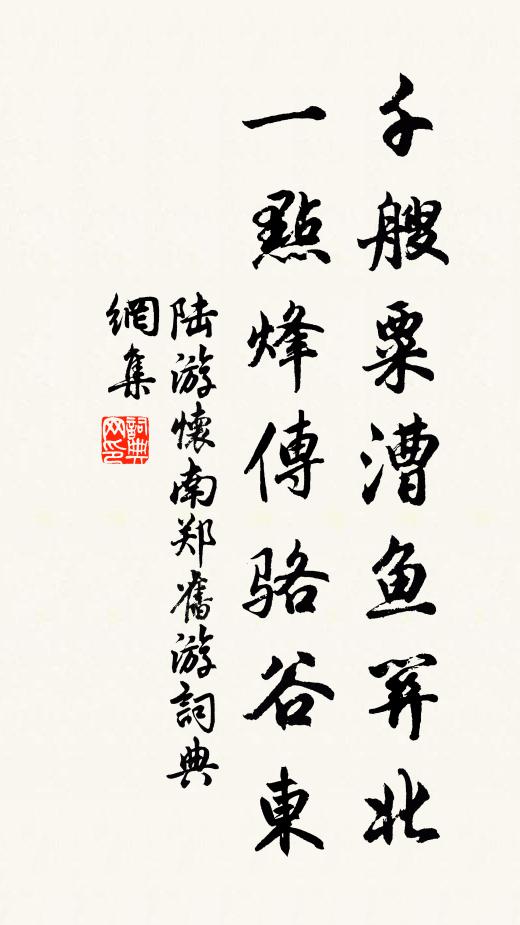 千艘粟漕鱼关北
一點烽傳骆谷東
陆游懷南郑舊游詞典
網集
詞典
网印